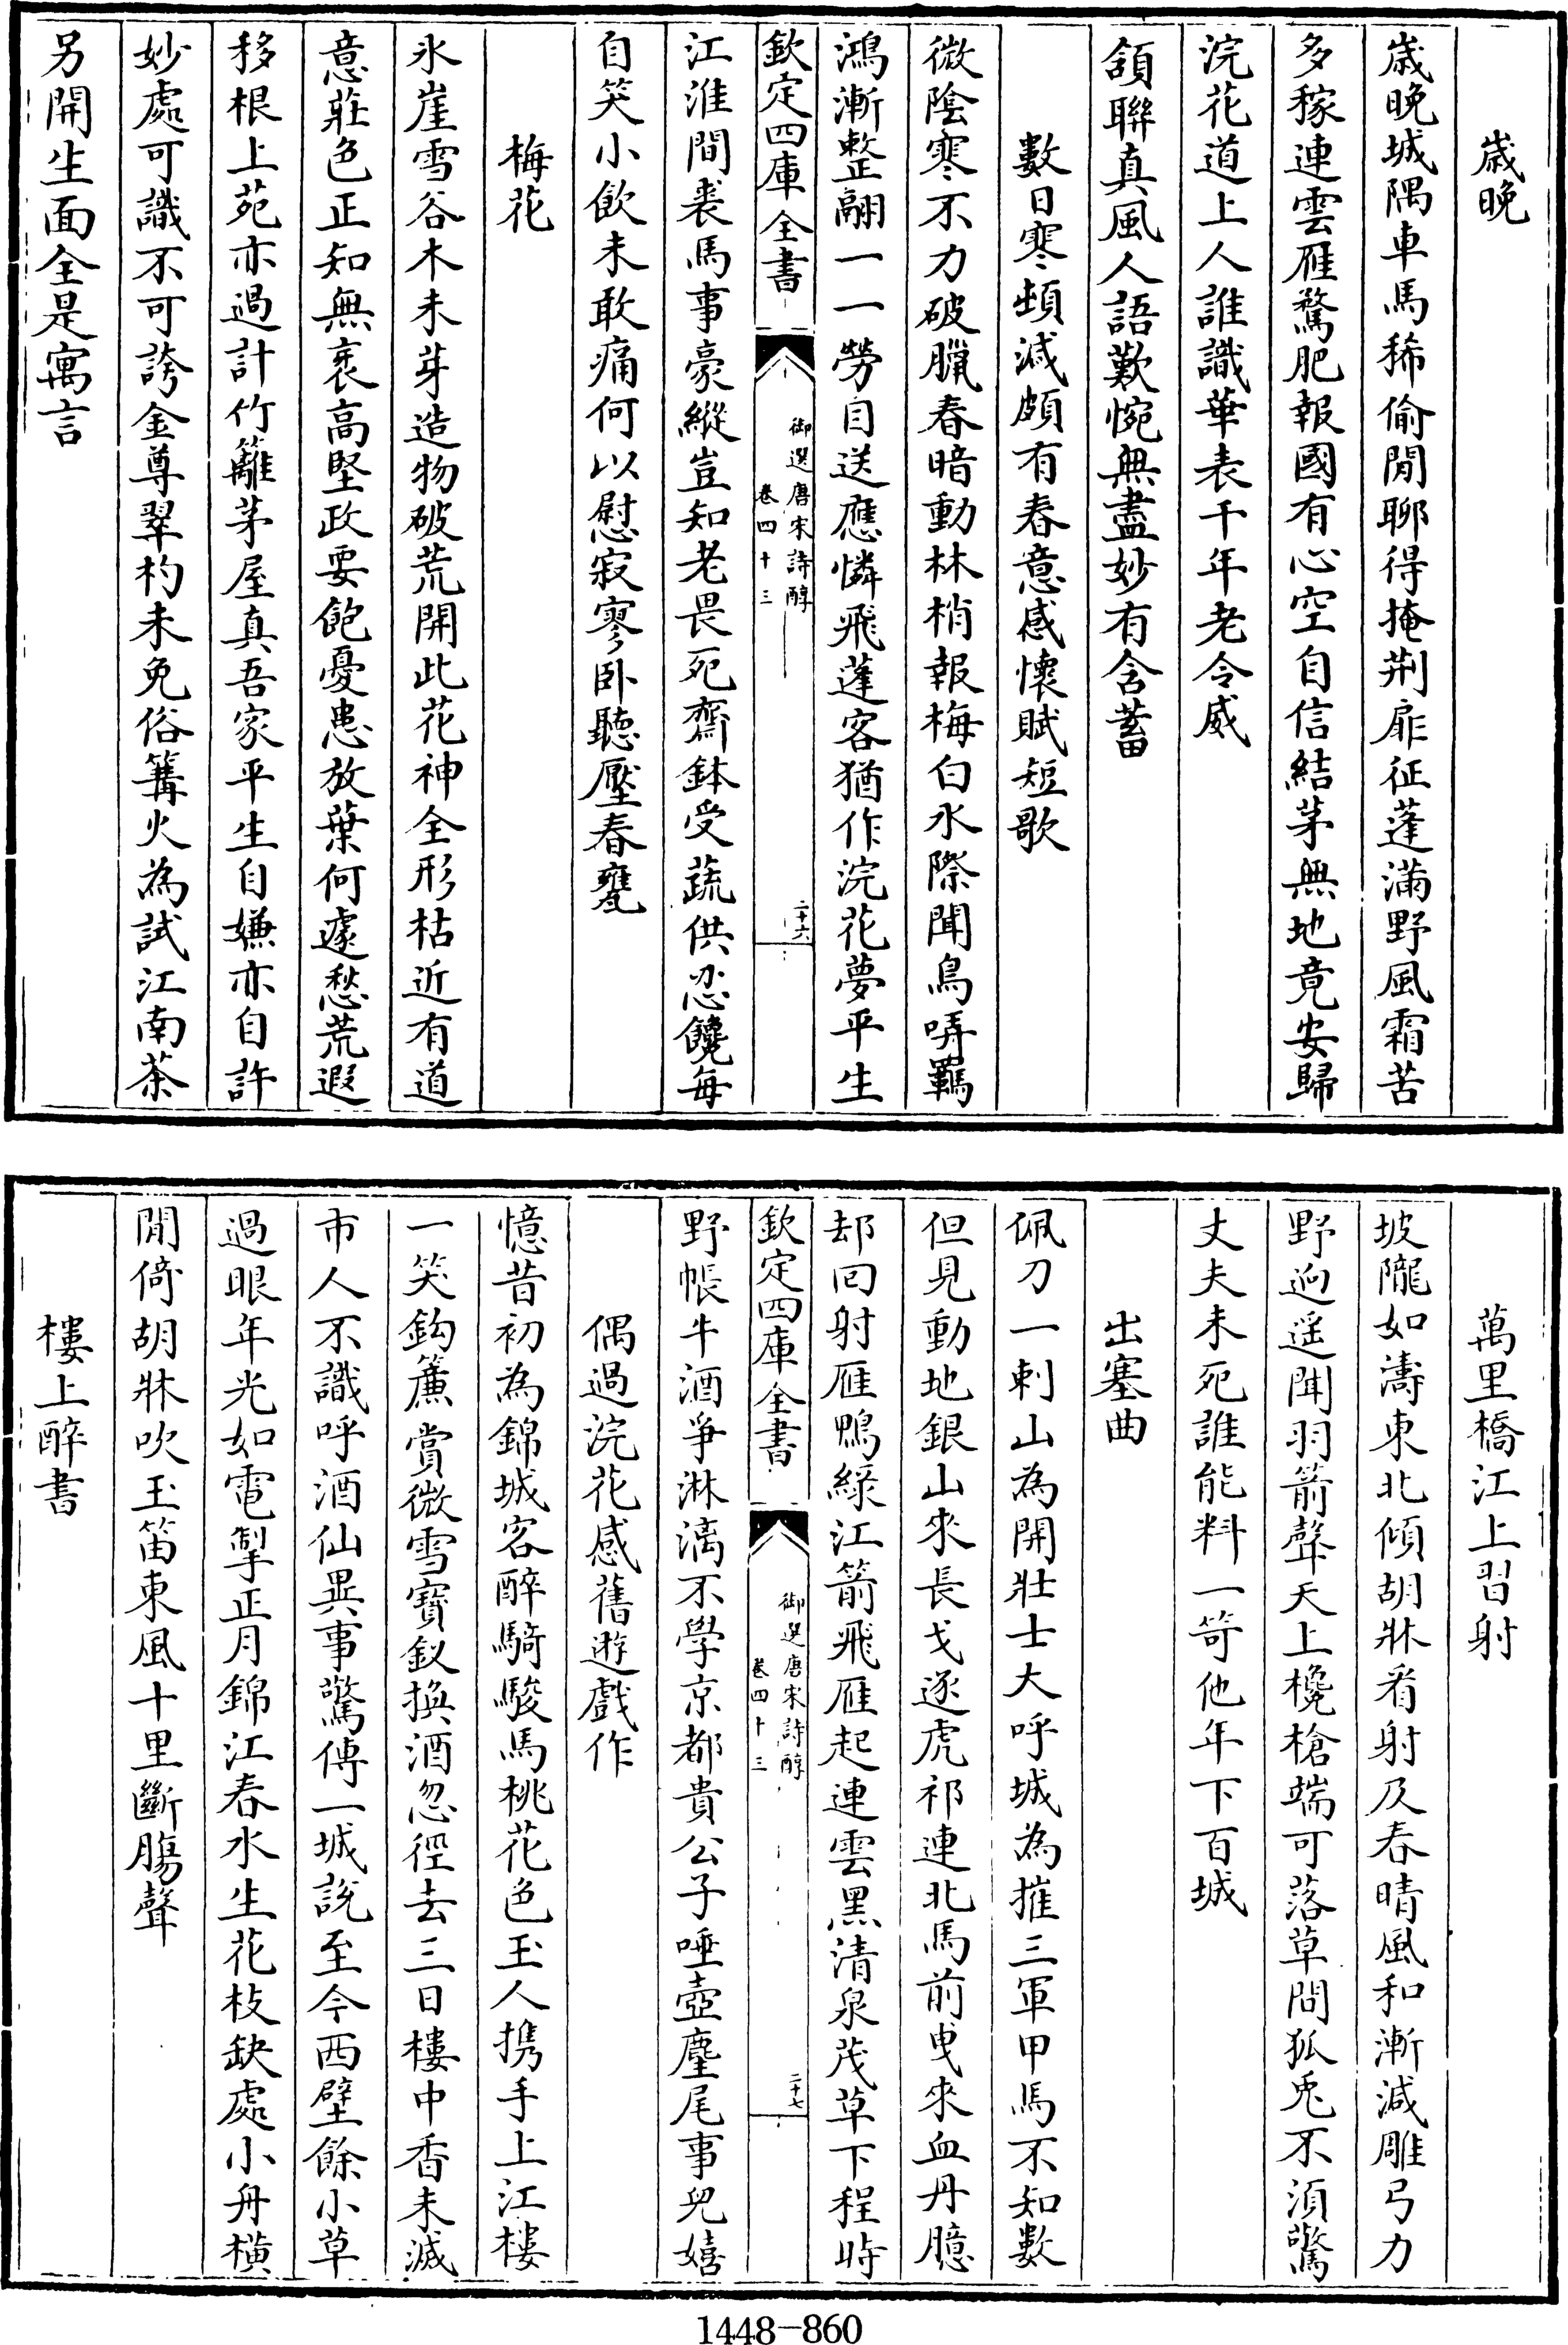 歳晚
歳晚城隅車馬稀偷閒聊得掩荆扉征蓬滿野風霜苦
多稼連雲雁鶩肥報國有心空自信結茅無地竟安歸
浣花道上人誰識華表千年老令威
頷聯真風人語歎惋無盡妙有含蓄
數日寒頓減頗有春意感懷賦短歌
微陰寒不力破臘春暗動林梢報梅白水際聞鳥哢羈
鴻漸整翮一一勞目送應憐飛蓬客猶作浣花夢平生
欽定四庫全書
御選唐宋詩醇
卷四十三
二十六
江淮間裘馬事豪縱豈知老畏死齋鉢受蔬供忍饞每
自笑小飲未敢痛何以慰寂寥卧聽壓春甕
梅花
氷崖雪谷木未芽造物破荒開此花神全形枯近有道
意莊色正知無衺高堅政要飽憂患放葉何遽愁荒遐
移根上苑亦過計竹籬茅屋真吾家平生自嫌亦自許
妙處可識不可誇金尊翠杓未免俗篝火為試江南茶
另開生面全是寓言
萬里橋江上習射
坡隴如濤東北傾胡牀看射及春晴風和漸減雕弓力
野迥遥聞羽箭聲天上欃槍端可落草間狐兎不須驚
丈夫未死誰能料一笴他年下百城
出塞曲
佩刀一刺山為開壯士大呼城為摧三軍甲馬不知數
但見動地銀山來長戈逐虎祁連北馬前曳來血丹臆
却回射雁鴨綠江箭飛雁起連雲黑清泉茂草下程時
欽定四庫全書
御選唐宋詩醇
卷四十三
二十七
野帳牛酒爭淋漓不學京都貴公子唾壺麈尾事兒嬉
偶過浣花感舊遊戲作
憶昔初為錦城客醉騎駿馬桃花色玉人携手上江樓
一笑鈎簾賞微雪寶釵換酒忽徑去三日樓中香未滅
市人不識呼酒仙異事驚傳一城說至今西壁餘小草
過眼年光如電掣正月錦江春水生花枝缺處小舟橫
閒倚胡牀吹玉笛東風十里斷腸聲
樓上醉書
1448-860